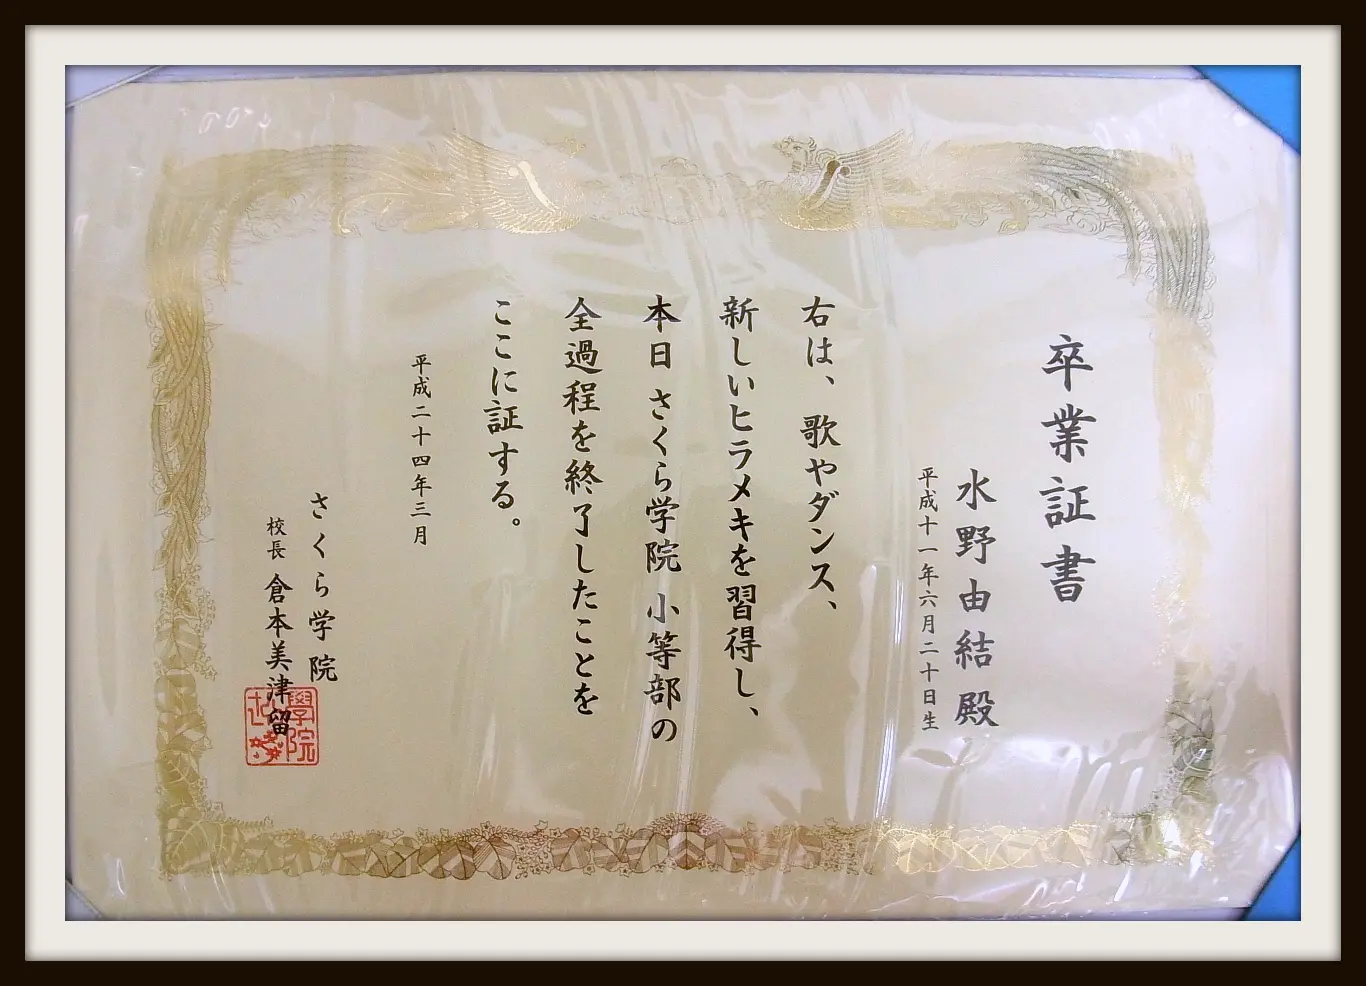 卒業証書
水野由結殿
平成十一年六月二十日生
右は、歌やダンス、
新しいヒラメキを習得し、
本日さくら学院 小等部の
全過程を終了したことを
ここに証する。
平成二十四年三月
さくら学院
校長 倉本美津留